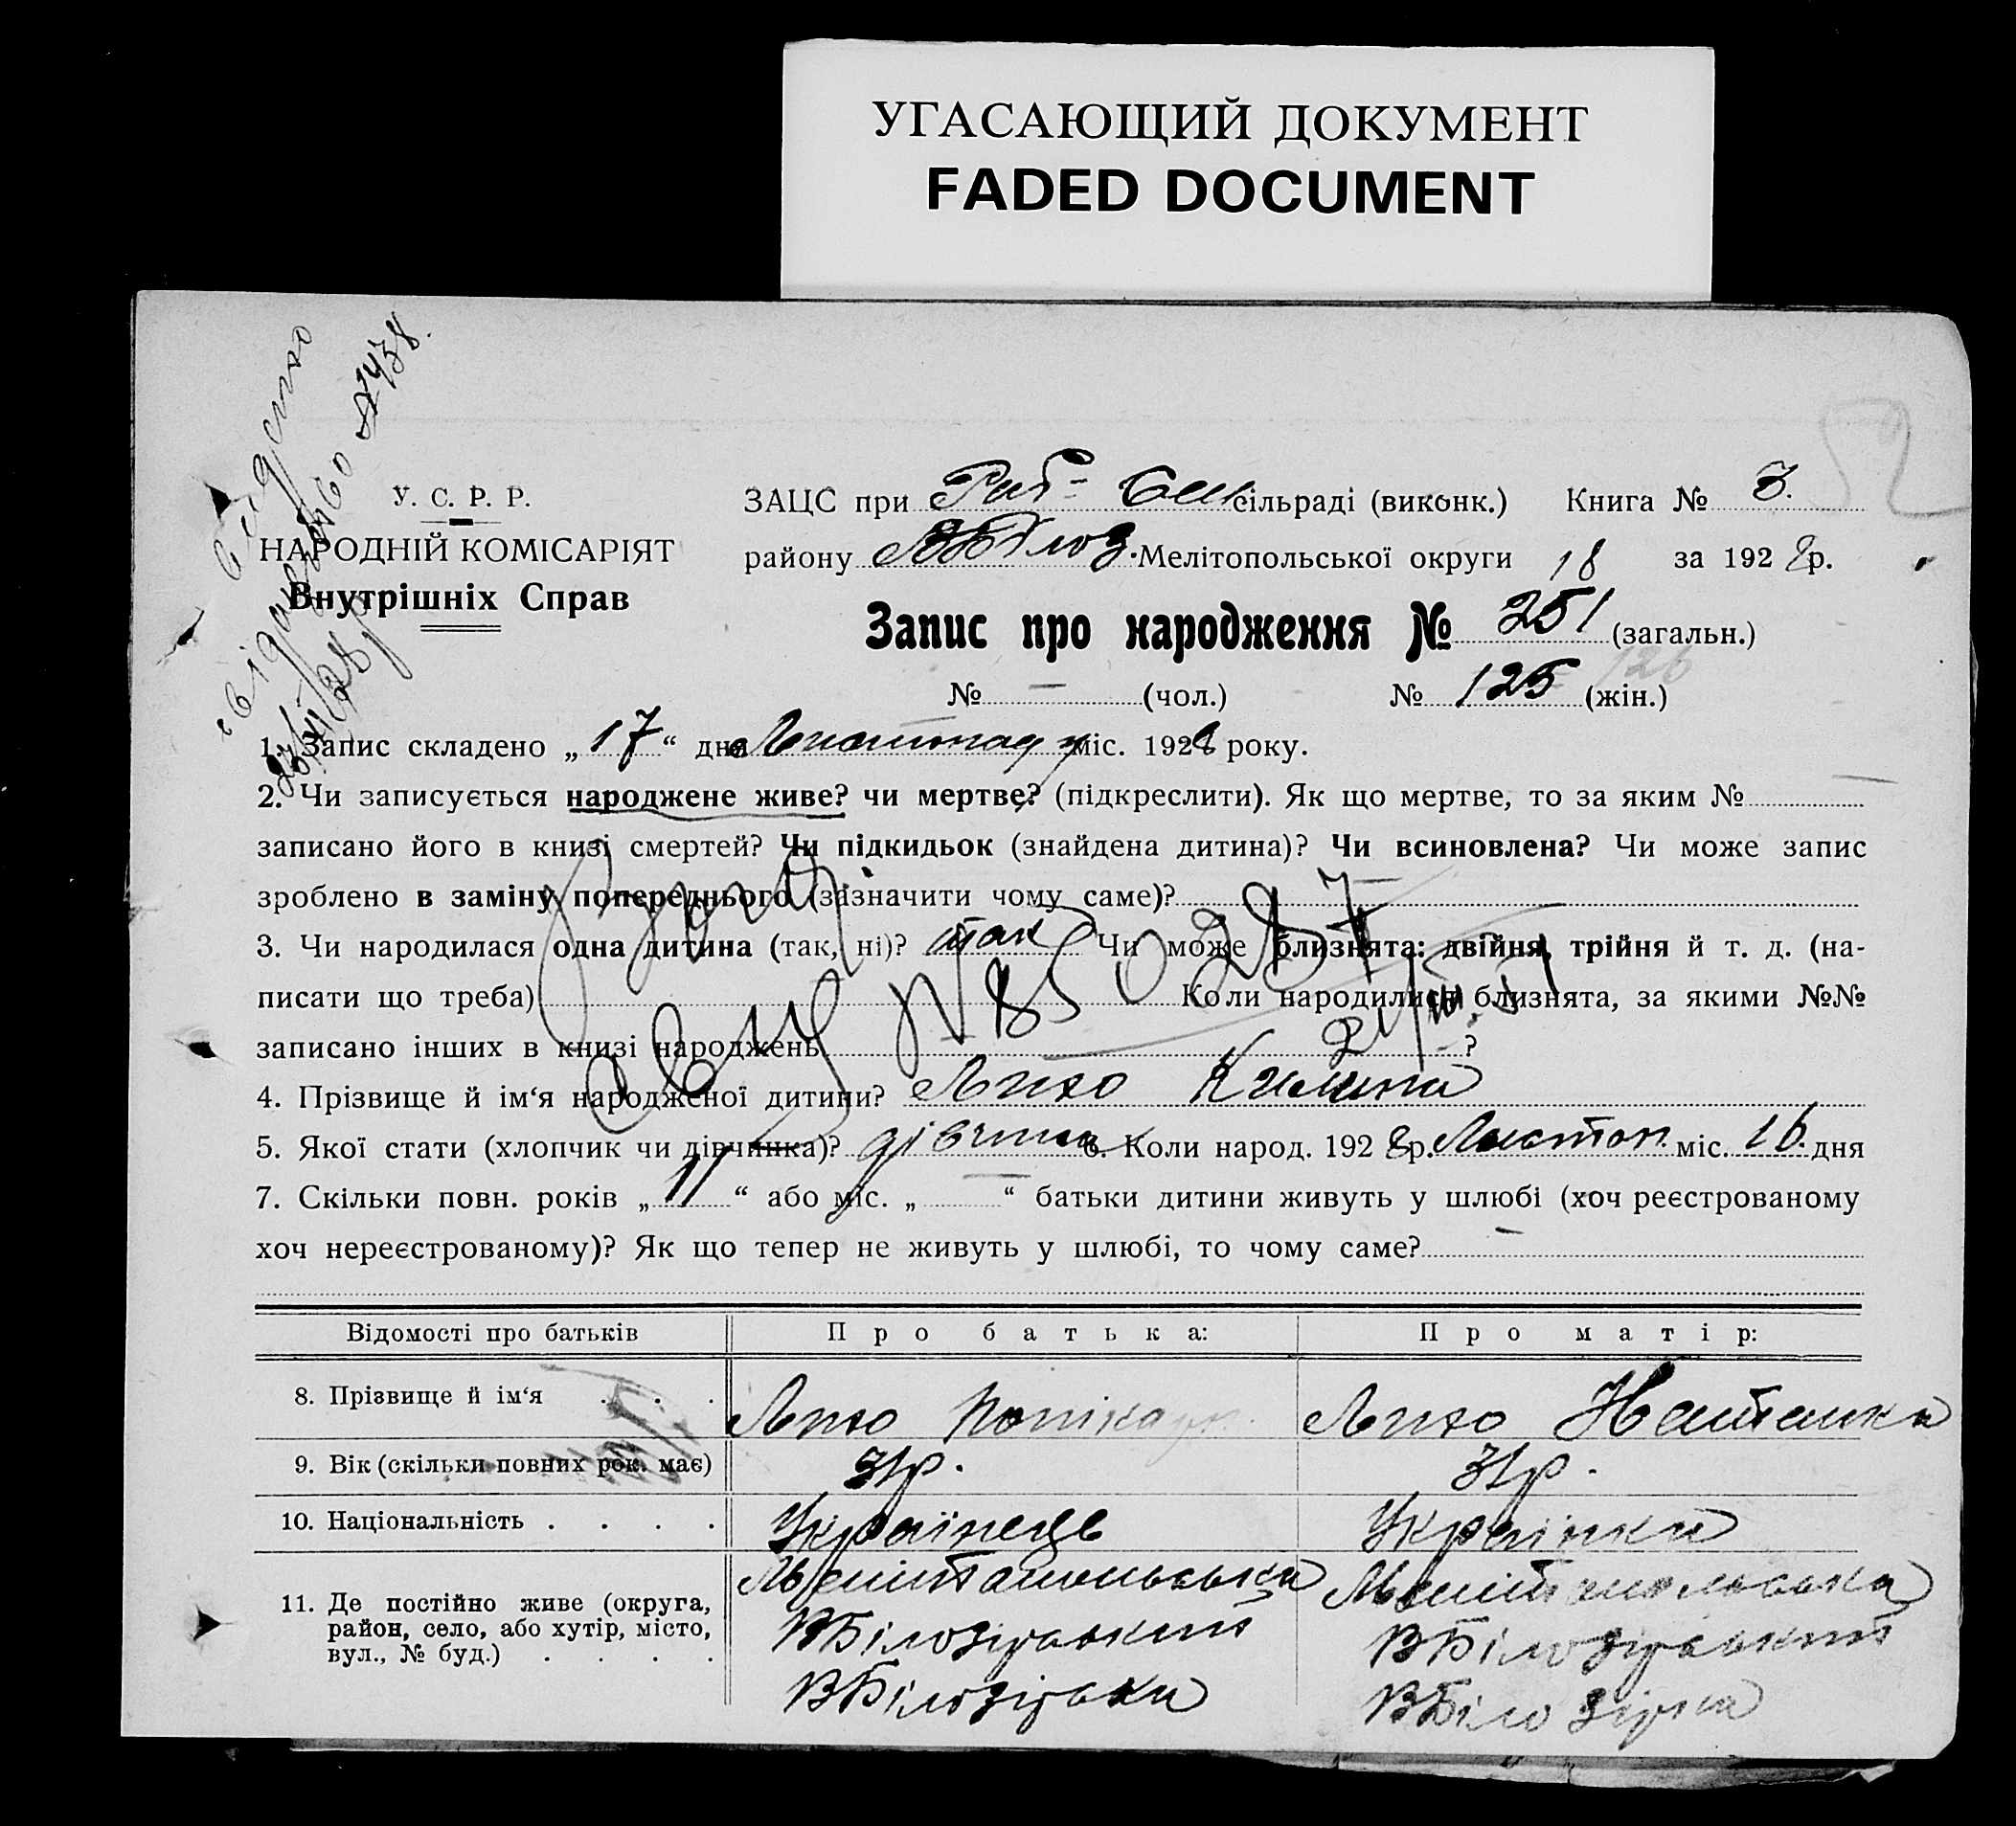 УГАСАЮЩИЙ ДОКУМЕНТ
FADED DOCUMENT
52
У. С. Р. Р.
НАРОДНІЙ КОМІСАРІЯТ
Внутрішніх Справ
ЗАЦС при сільраді (виконк.) Книга № 3.
району ВБілоз. Мелітопольської округи 18 за 1928 р.
Запис про народження № 251 (загальн.)
№ — (чол.) № 125 (жін.) 126
1. Запис складено „ 17 “ дня Листопаду міс. 1928 року.
2. Чи записується народжене живе? чи мертве? (підкреслити). Як що мертве, то за яким №
записано його в книзі смертей? Чи підкидьок (знайдена дитина)? Чи всиновлена? Чи може запис
зроблено в заміну попереднього (зазначити чому саме)?
3. Чи народилася одна дитина (так, ні)? так Чи може близнята: двійня, трійня й т. д. (на-
писати що треба) Коли народилися близнята, за якими №№
записано інших в книзі народжень ?
4. Прізвище й ім‘я народженої дитини? Лихо Килина
5. Якої стати (хлопчик чи дівчинка)? дівчина 6. Коли народ. 1928 р. Листоп. міс. 16. дня
7. Скільки повн. років „ 11 “ або міс. „ — “ батьки дитини живуть у шлюбі (хоч реєстрованому
хоч нереєстрованому)? Як що тепер не живуть у шлюбі, то чому саме? —
Відомості про батьків Про батька: Про матір:
8. Прізвище й ім‘я Лихо Лихо Наталка
9. Вік (скільки повних рок. має) 31р. 31р.
10. Національність Українець Українка
11. Де постійно живе (округа, район, село, або хутір, місто, вул., № буд.)
Мелітопольська Мелітопольська
ВБілозірський ВБілозірський
ВБілозірка ВБілозірка